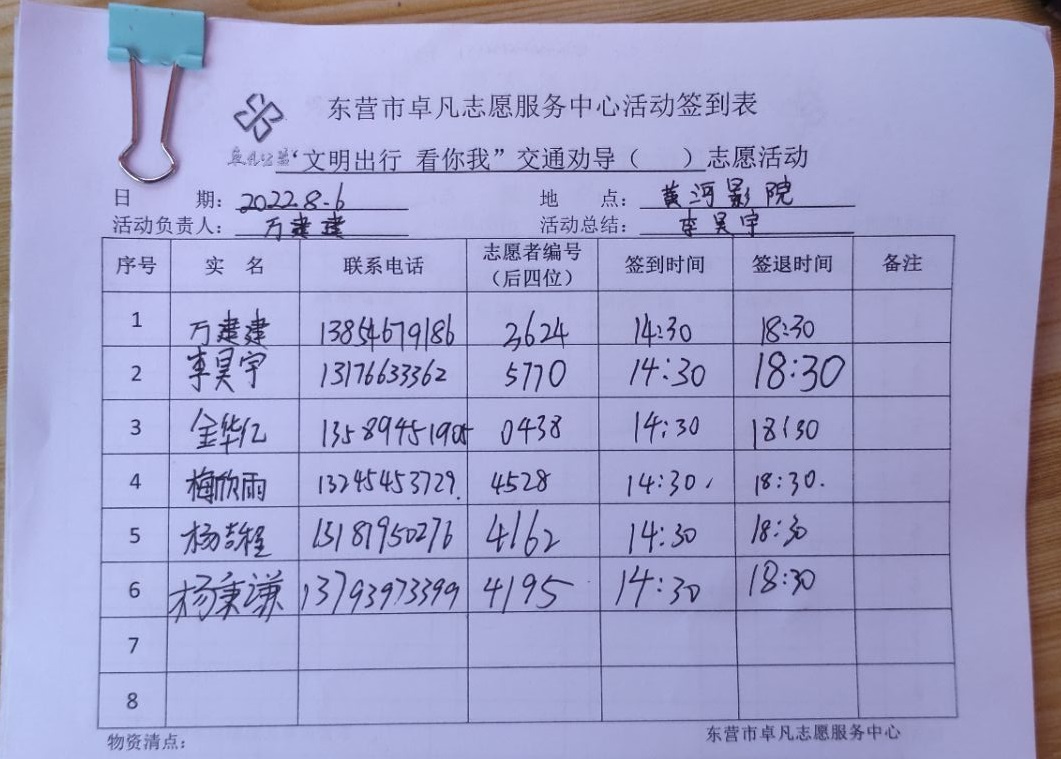 东营市卓凡志愿服务中心活动签到表
卓凡公益 “文明出行 看你我”交通劝导（ ）志愿活动
日 期：2022.8.6 地 点：黄河影院
活动负责人：万建建 活动总结：李昊宇
序号 实 名 联系电话 志愿者编号（后四位） 签到时间 签退时间 备注
1 万建建 13854679186 2624 14:30 18:30
2 李昊宇 13176633362 5770 14:30 18:30
3 金华亿 13589451905 0438 14:30 18:30
4 梅欣雨 13245453729. 4528 14:30. 18:30.
5 杨喆程 13181950276 4162 14:30 18:30
6 杨秉谦 13793973399 4195 14:30 18:30
7
8
物资清点： 东营市卓凡志愿服务中心